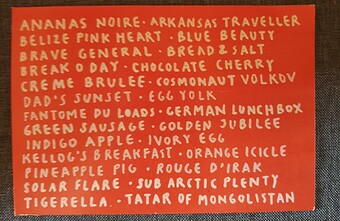 ANANAS NOIRE · ARKANSAS TRAVELLER
BELIZE PINK HEART · BLUE BEAUTY
BRAVE GENERAL · BREAD & SALT
BREAK O DAY · CHOCOLATE CHERRY
CREME BRULEE · COSMONAUT VOLKOV
DAD'S SUNSET · EGG YOLK
FANTOME DU LOADS · GERMAN LUNCHBOX
GREEN SAUSAGE · GOLDEN JUBILEE
INDIGO APPLE · IVORY EGG
KELLOG'S BREAKFAST · ORANGE ICICLE
PINEAPPLE PIG · ROUGE D'IRAK
SOLAR FLARE · SUB ARCTIC PLENTY
TIGERELLA · TATAR OF MONGOLISTAN